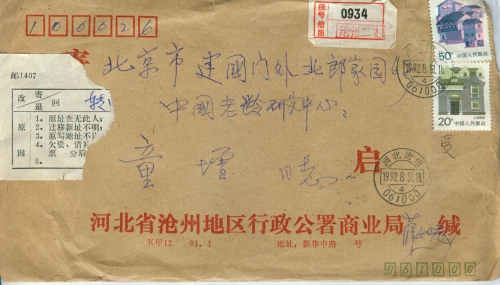 100026
挂号信函
0934
50分
中国人民邮政
20分
中国人民邮政
北京市建国门外北郎家园
中国老龄研究中心
童增 同志
启
商1407
改 寄
退 回
原 因
1. 原址查无此人;
2. 迁移新址不明;
3. 原写地址不
4. 欠资,请
票 分后
5.
河北沧州
1992.8.31.18
4
061000
河北省沧州地区行政公署商业局 缄
地址:新华中路 号
061000